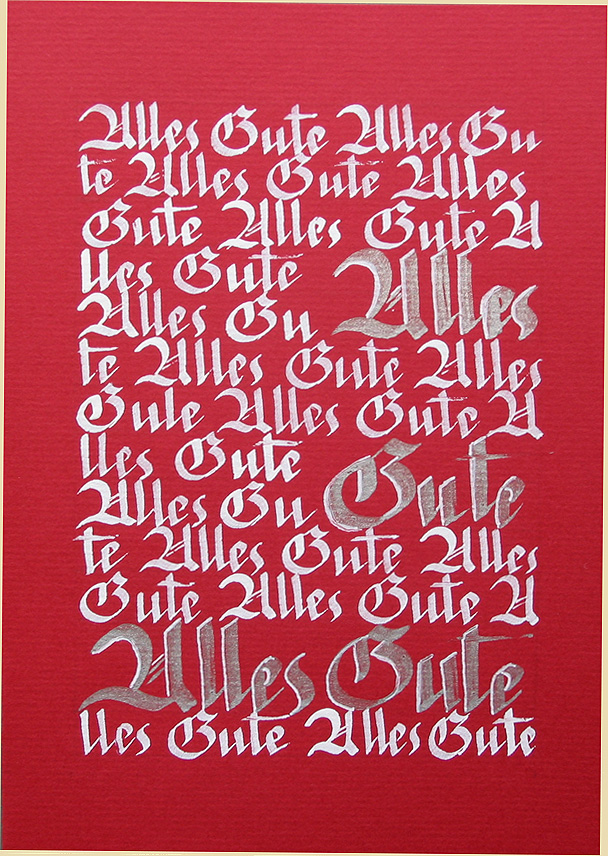 Alles Gute Alles Gu
te Alles Gute Alles
Gute Alles Gute A
lles Gute Alles
Alles Gu
te Alles Gute Alles
Gute Alles Gute A
lles Gute
Alles Gu Gute
te Alles Gute Alles
Gute Alles Gute A
Alles Gute
lles Gute Alles Gute